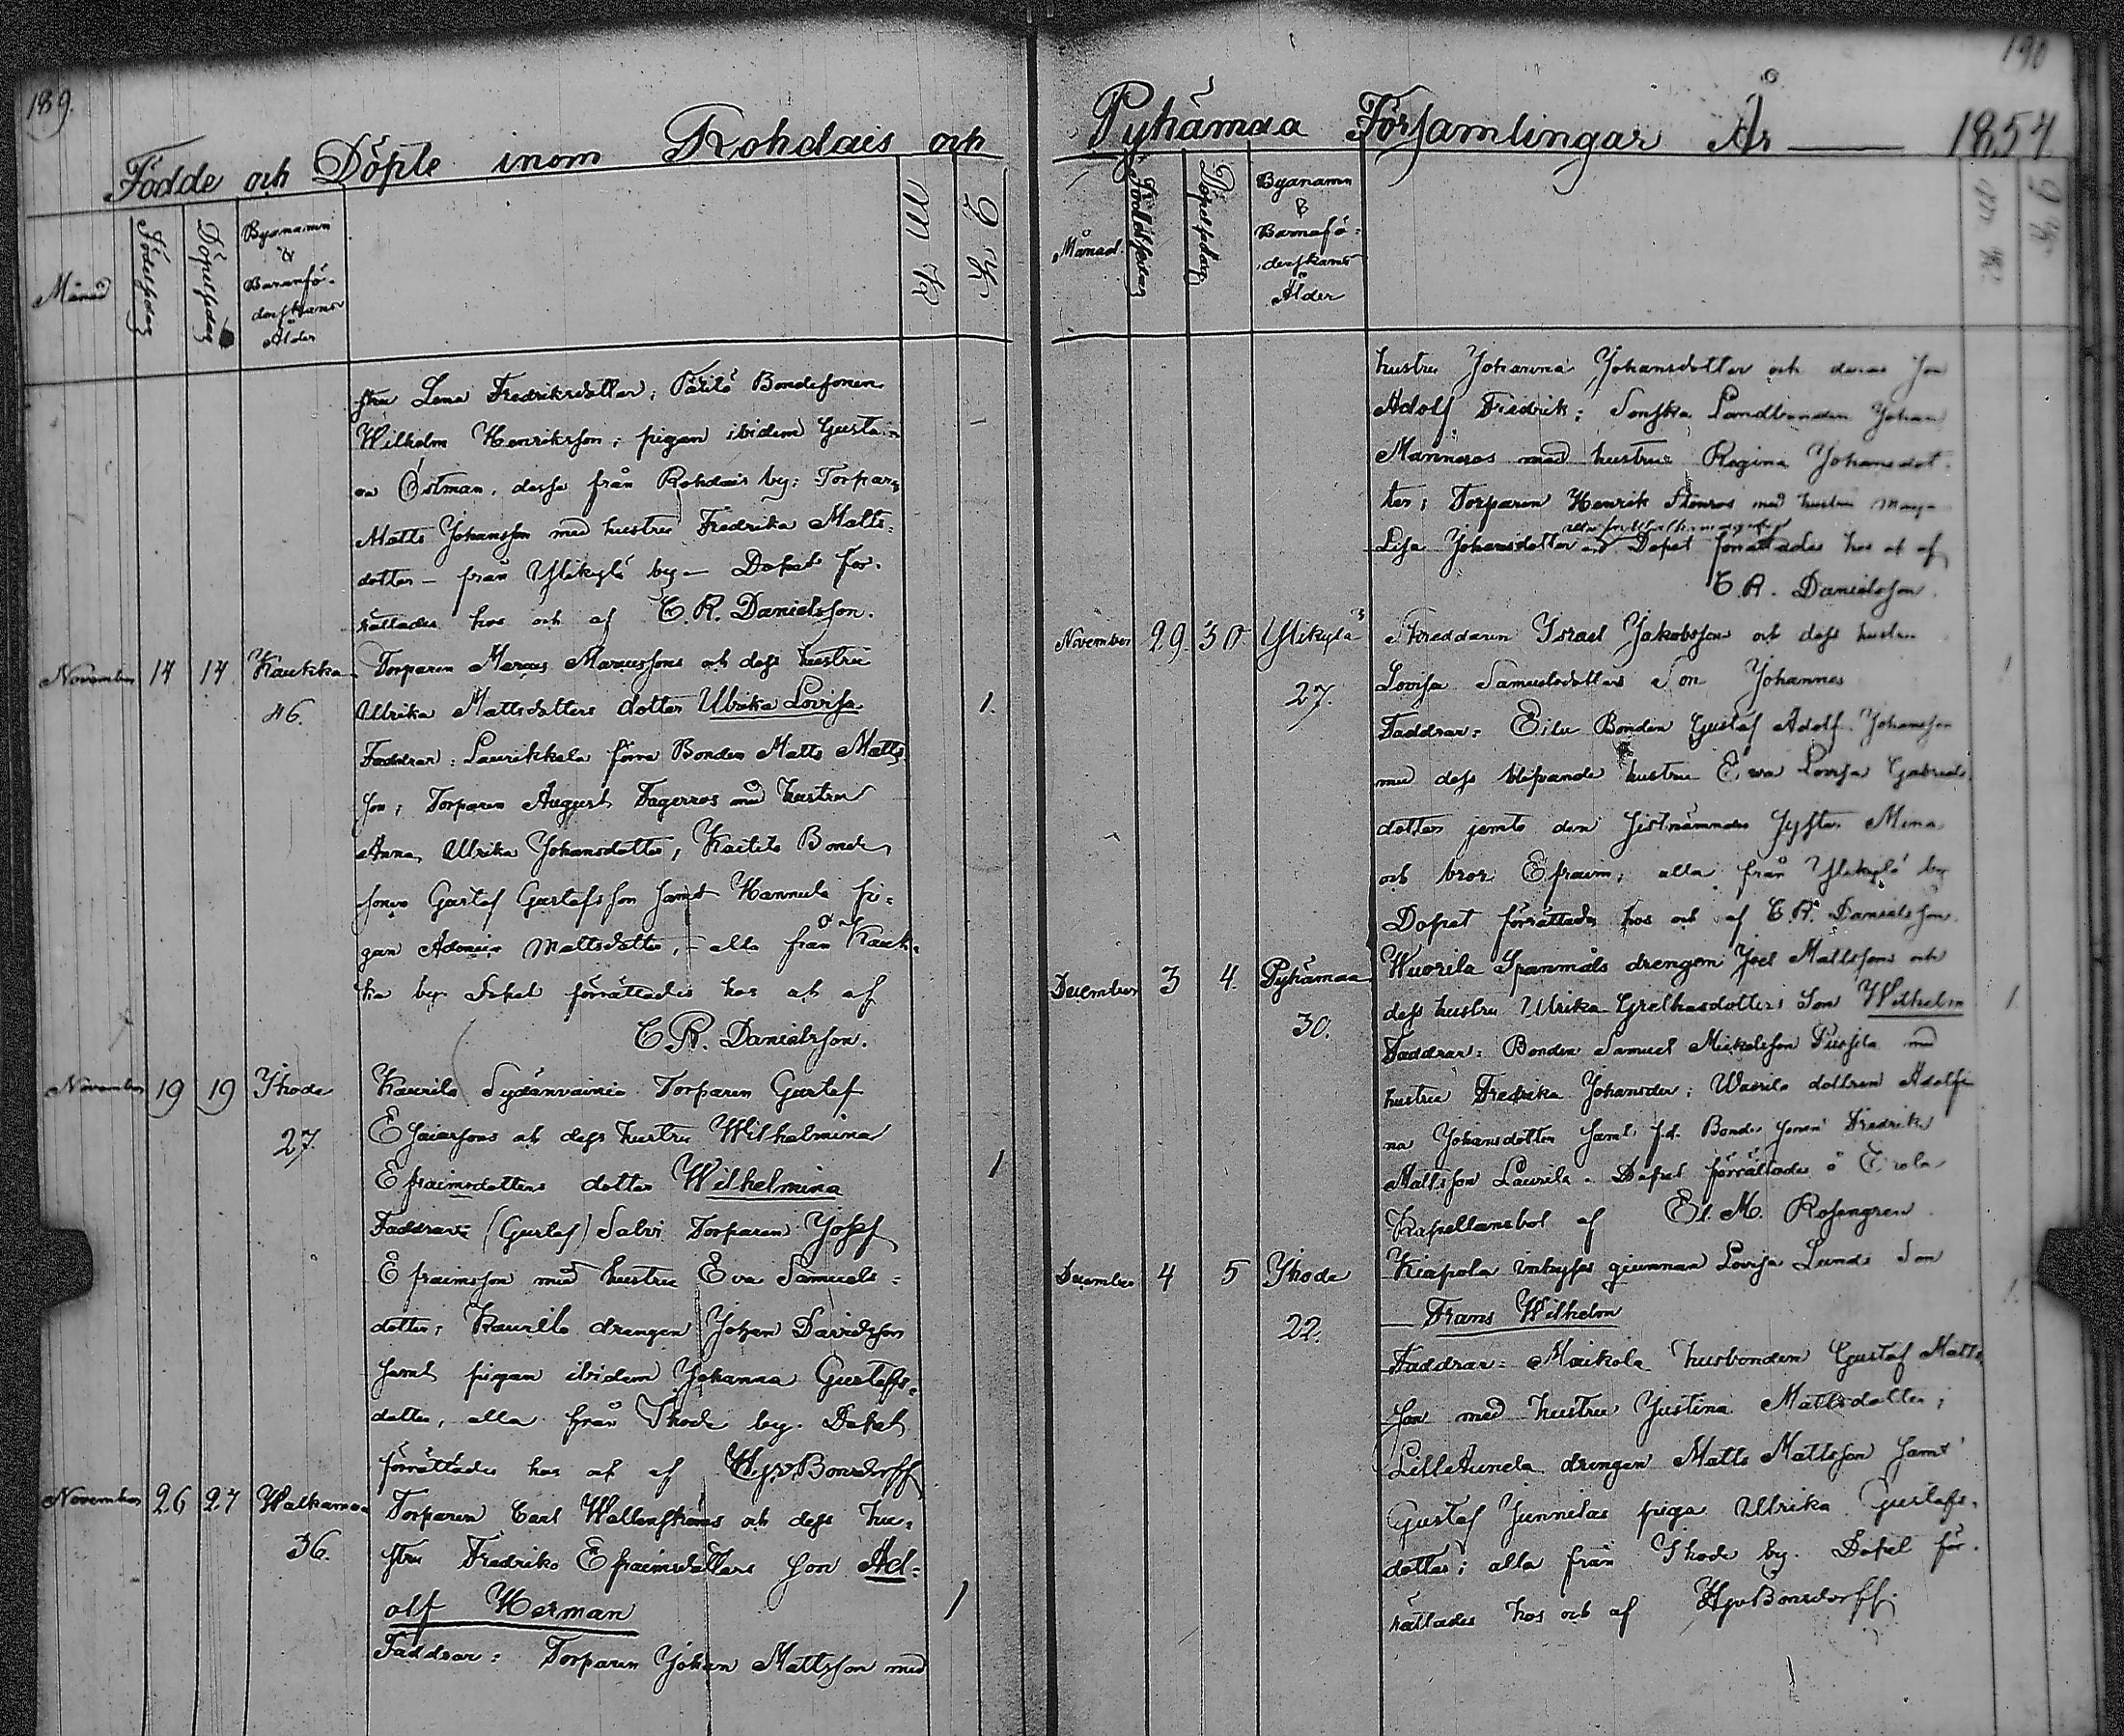 189.
Födde och Döpte inom Rohdais och
Månad
Födelsedag
Döpelsedag
Byanamn
&
Barnafö-
derskans
Ålder
M K
Q K
stru Lena Fredriksdotter; Päitö Bondesonen
Wilhelm Henriksson; pigan ibidem Gusta-
va Östman, dessa från Rohdais by; Torparen
Matts Johansson med hustru Fredrika Matts-
dotter – från Ylikylä by – Dopet för-
rättades hos och af C. R. Danielsson.
November 14 14 Kaukka Torparen Marcus Marcussons och dess hustru
46. Ulrika Mattsdotters dotter Ulrika Lovisa 1.
Faddrar: Laurikkala förra Bonden Matts Matts
son; Torparen August Fagerros med hustru
Anna Ulrika Johansdotter, Bonde
sonen Gustaf Gustafsson samt Hannula pi-
gan Mattsdotter, – alla från Kauk-
ka by. Dopet förrättades hos och af
C. R. Danielsson.
November 19 19 Ihode Kaurila Sydänvainio Torparen Gustaf
27. Esaiassons och dess hustru Wilhelmina
Efraimsdotters dotter Wilhelmina 1
Faddrar: (Gustaf) Salvi Torparen Josef
Efraimsson med hustru Eva Samuels-
dotter; Kaurila drengen Johan Davidsson
samt pigan ibidem Johanna Gustafs-
dotter, alla från Ihode by. Dopet
förrättades hos och af Hj. v. Bonsdorff
November 26 27 Walkamaa Torparen Carl Wallenströms och dess hu-
36. stru Fredrika Efraimsdotters son Ad-
olf Herman 1
Faddrar: Torparen Johan Mattsson med
190
Pyhämaa Församlingar År 1854
Månad
Födelsedag
Döpelsedag
Byanamn
&
Barnafö-
derskans
Ålder
M K
Q K
hustru Johanna Johansdotter och deras son
Adolf Fredrik; Landbonden Johan
Manneros med hustru Regina Johansdot-
ter; Torparen Henrik Stenros med hustru Maja
Lisa Johansdotter Dopet förrättades hos och af
C. R. Danielsson.
November 29 30 Ylikylä Skreddaren Israel Jakobssons och dess hustru
27. Lovisa Samuelsdotters Son Johannes 1
Faddrar: Eilu Bonden Gustaf Adolf Johansson
med dess blifvande hustru Eva Lovisa Gabriels
dotter jemte den sistnämndes syster Mina
och bror Efraim; alla från Ylikylä by
Dopet förrättades hos och af C. R. Danielsson.
December 3 4. Pyhämaa Wuorila Spanmåls drengen Joel Mattssons och
30. dess hustru Ulrika Grelhasdotters Son Wilhelm 1.
Faddrar: Bonden Samuel Mickelsson med
hustru Fredrika Johansdr; dottren Adolfi
na Johansdotter samt f.d. Bonde sonen Fredrik
Mattsson Laurila. Dopet förrättades å Eirola
Kapellansbol af El. M. Rosengren
December 4 5 Ihode Kiapola inhyses qvinnan Lovisa Lunds Son
22. Frans Wilhelm 1.
Faddrar: Maikola husbonden Gustaf Matts
son med hustru Justina Mattsdotter;
Lille drengen Matts Mattsson samt
Gustaf Junnilas piga Ulrika Gustafs-
dotter; alla från Ihode by. Dopet för-
rättades hos och af Hj v Bonsdorff.